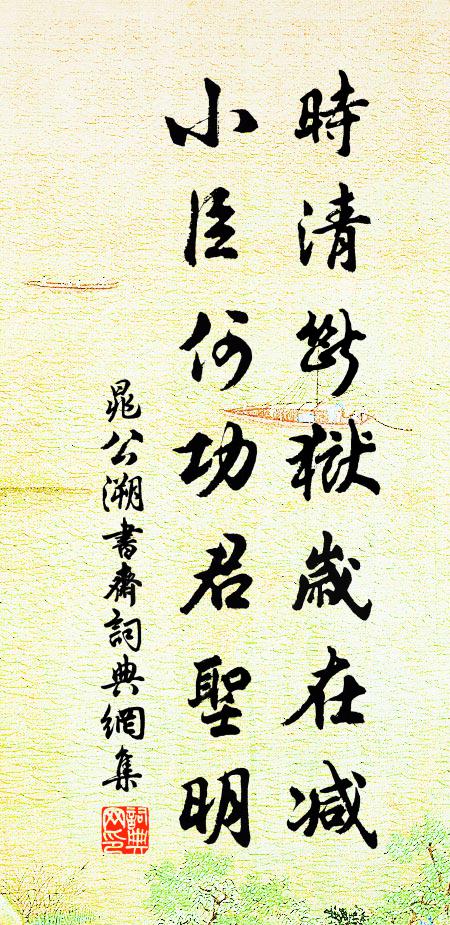 時清斷獄歲在減
小臣何功君聖明
晁公溯書齋詞典網集
詞典
网印